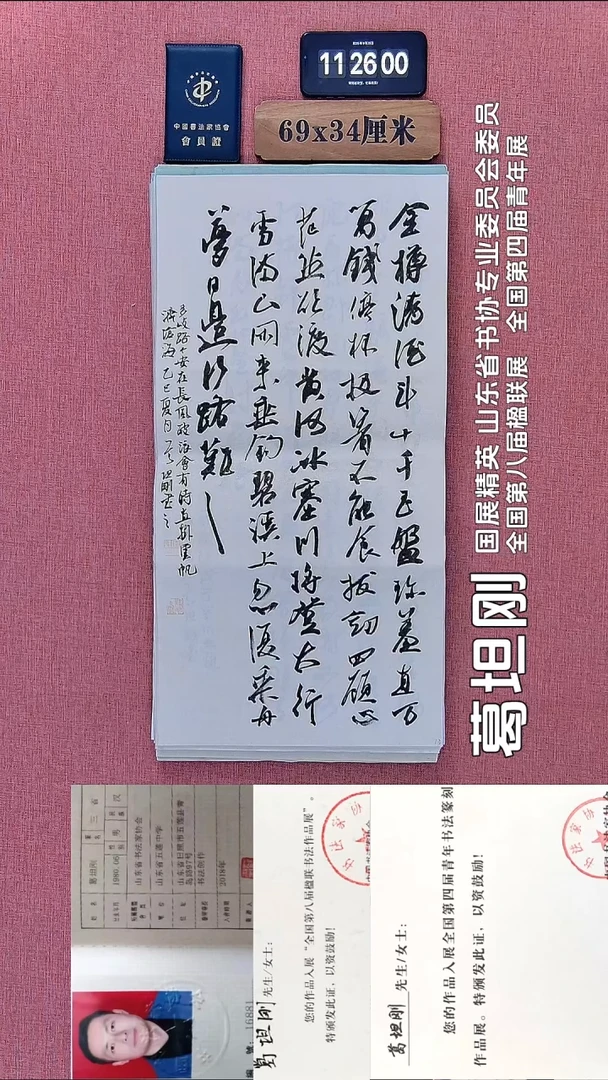 中國書法家協會
會員證
11 26 00
69x34厘米
金樽清酒斗十千玉盤珍羞直万
万錢停杯投箸不能食拔劍四顧心
茫然欲渡黄河冰塞川将登太行
雪满山闲来垂釣碧溪上忽復乘舟
夢日邊行路難
多歧路今安在長風破浪會有時直掛雲帆
濟滄海 乙巳夏月
国展精英 山东省书协专业委员会委员
全国第八届楹联展 全国第四届青年展
葛坦刚
姓名
葛坦刚
1980.08
山东省书法家协会
山东省五莲中学
书法创作
2018年
16881
葛坦刚 先生/女士:
您的作品入展“全国第八届楹联书法作品展”。
特颁发此证,以资鼓励!
葛坦刚 先生/女士:
您的作品入展全国第四届青年书法篆刻
作品展。特颁发此证,以资鼓励!